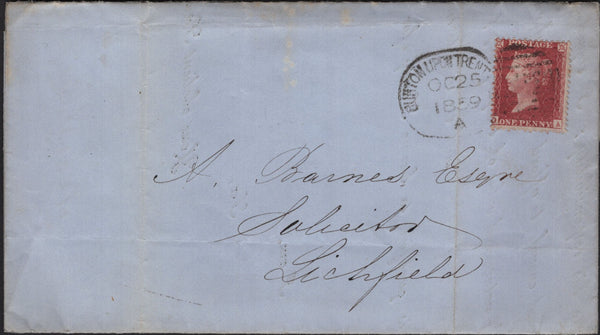 BURTON UPON TRENT
OC 25
1859
A
POSTAGE
ONE PENNY
A
A. Barnes Esqre
Solicitor
Lichfield